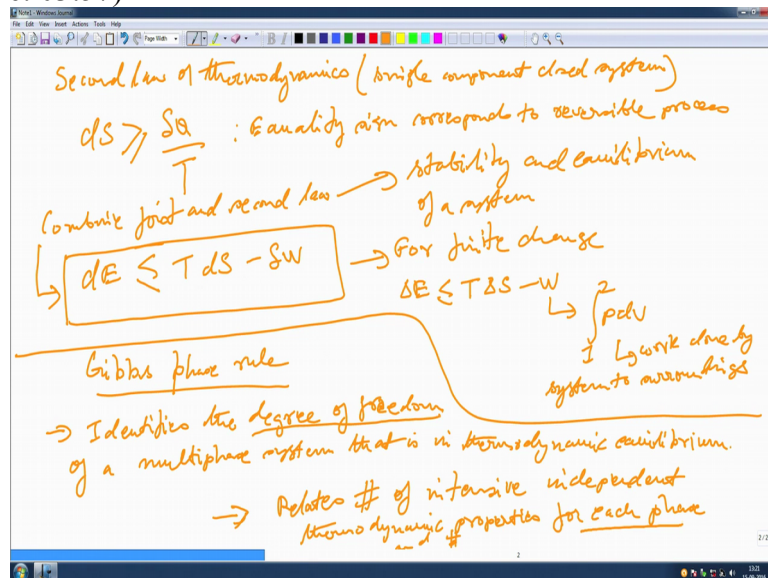 Note1 - Windows Journal
File Edit View Insert Actions Tools Help
Page Width
Second law of thermodynamics (single component closed system)
dS ≥ δQ/T : Equality sign corresponds to reversible process
Combine first and second law → stability and equilibrium
of a system
dE ≤ TdS - δW → For finite change
ΔE ≤ TΔS - W
↳ ∫₁² pdV
↳ work done by
system to surroundings
Gibbs phase rule
→ Identifies the degree of freedom
of a multiphase system that is in thermodynamic equilibrium.
→ Relates # of intensive independent
thermodynamic properties for each phase
and #
2
2/2
13:21
15-09-2016